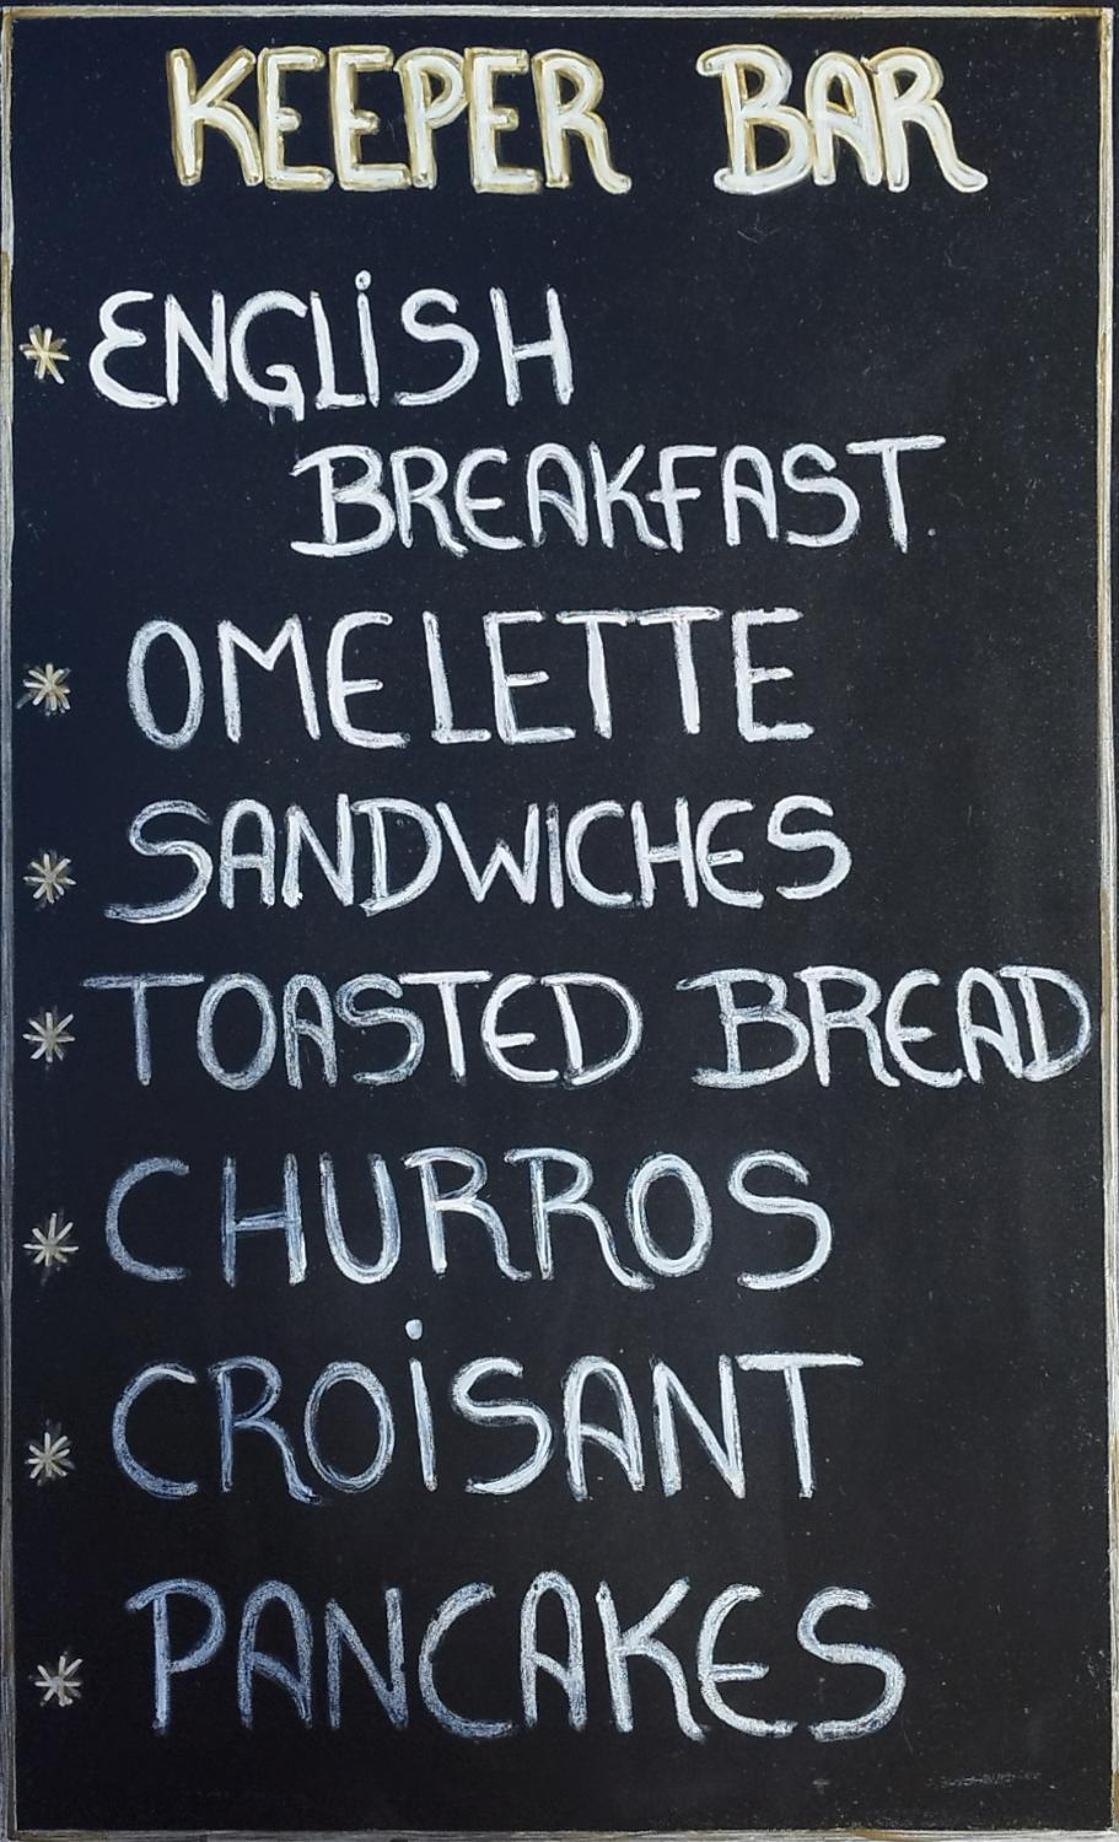 KEEPER BAR
* ENGLiSH
BREAKFAST.
* OMELETTE
* SANDWICHES
* TOASTED BREAD
* CHURROS
* CROiSANT
* PANCAKES